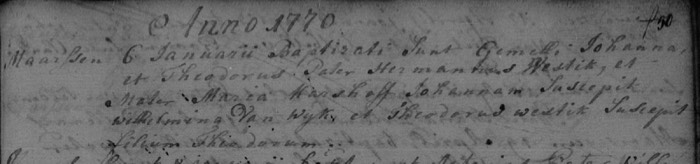 Anno 1770
Maarssen 6 Januarii Baptizati Sunt Gemelli Johanna,
et Theodorus Pater Hermannus Westik, et
Mater Maria Harshoff Johannam Suscepit
Wilhelmina Van Wyk, et Theodorus westik Suscepit
filium Theodorum.